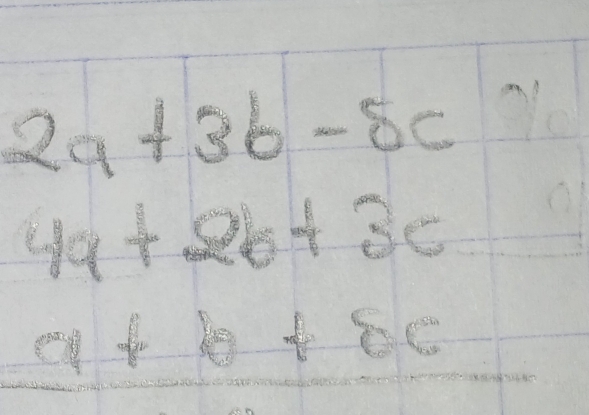 2a + 3b - 8c
4a + 2b + 3c
a + b + 8c